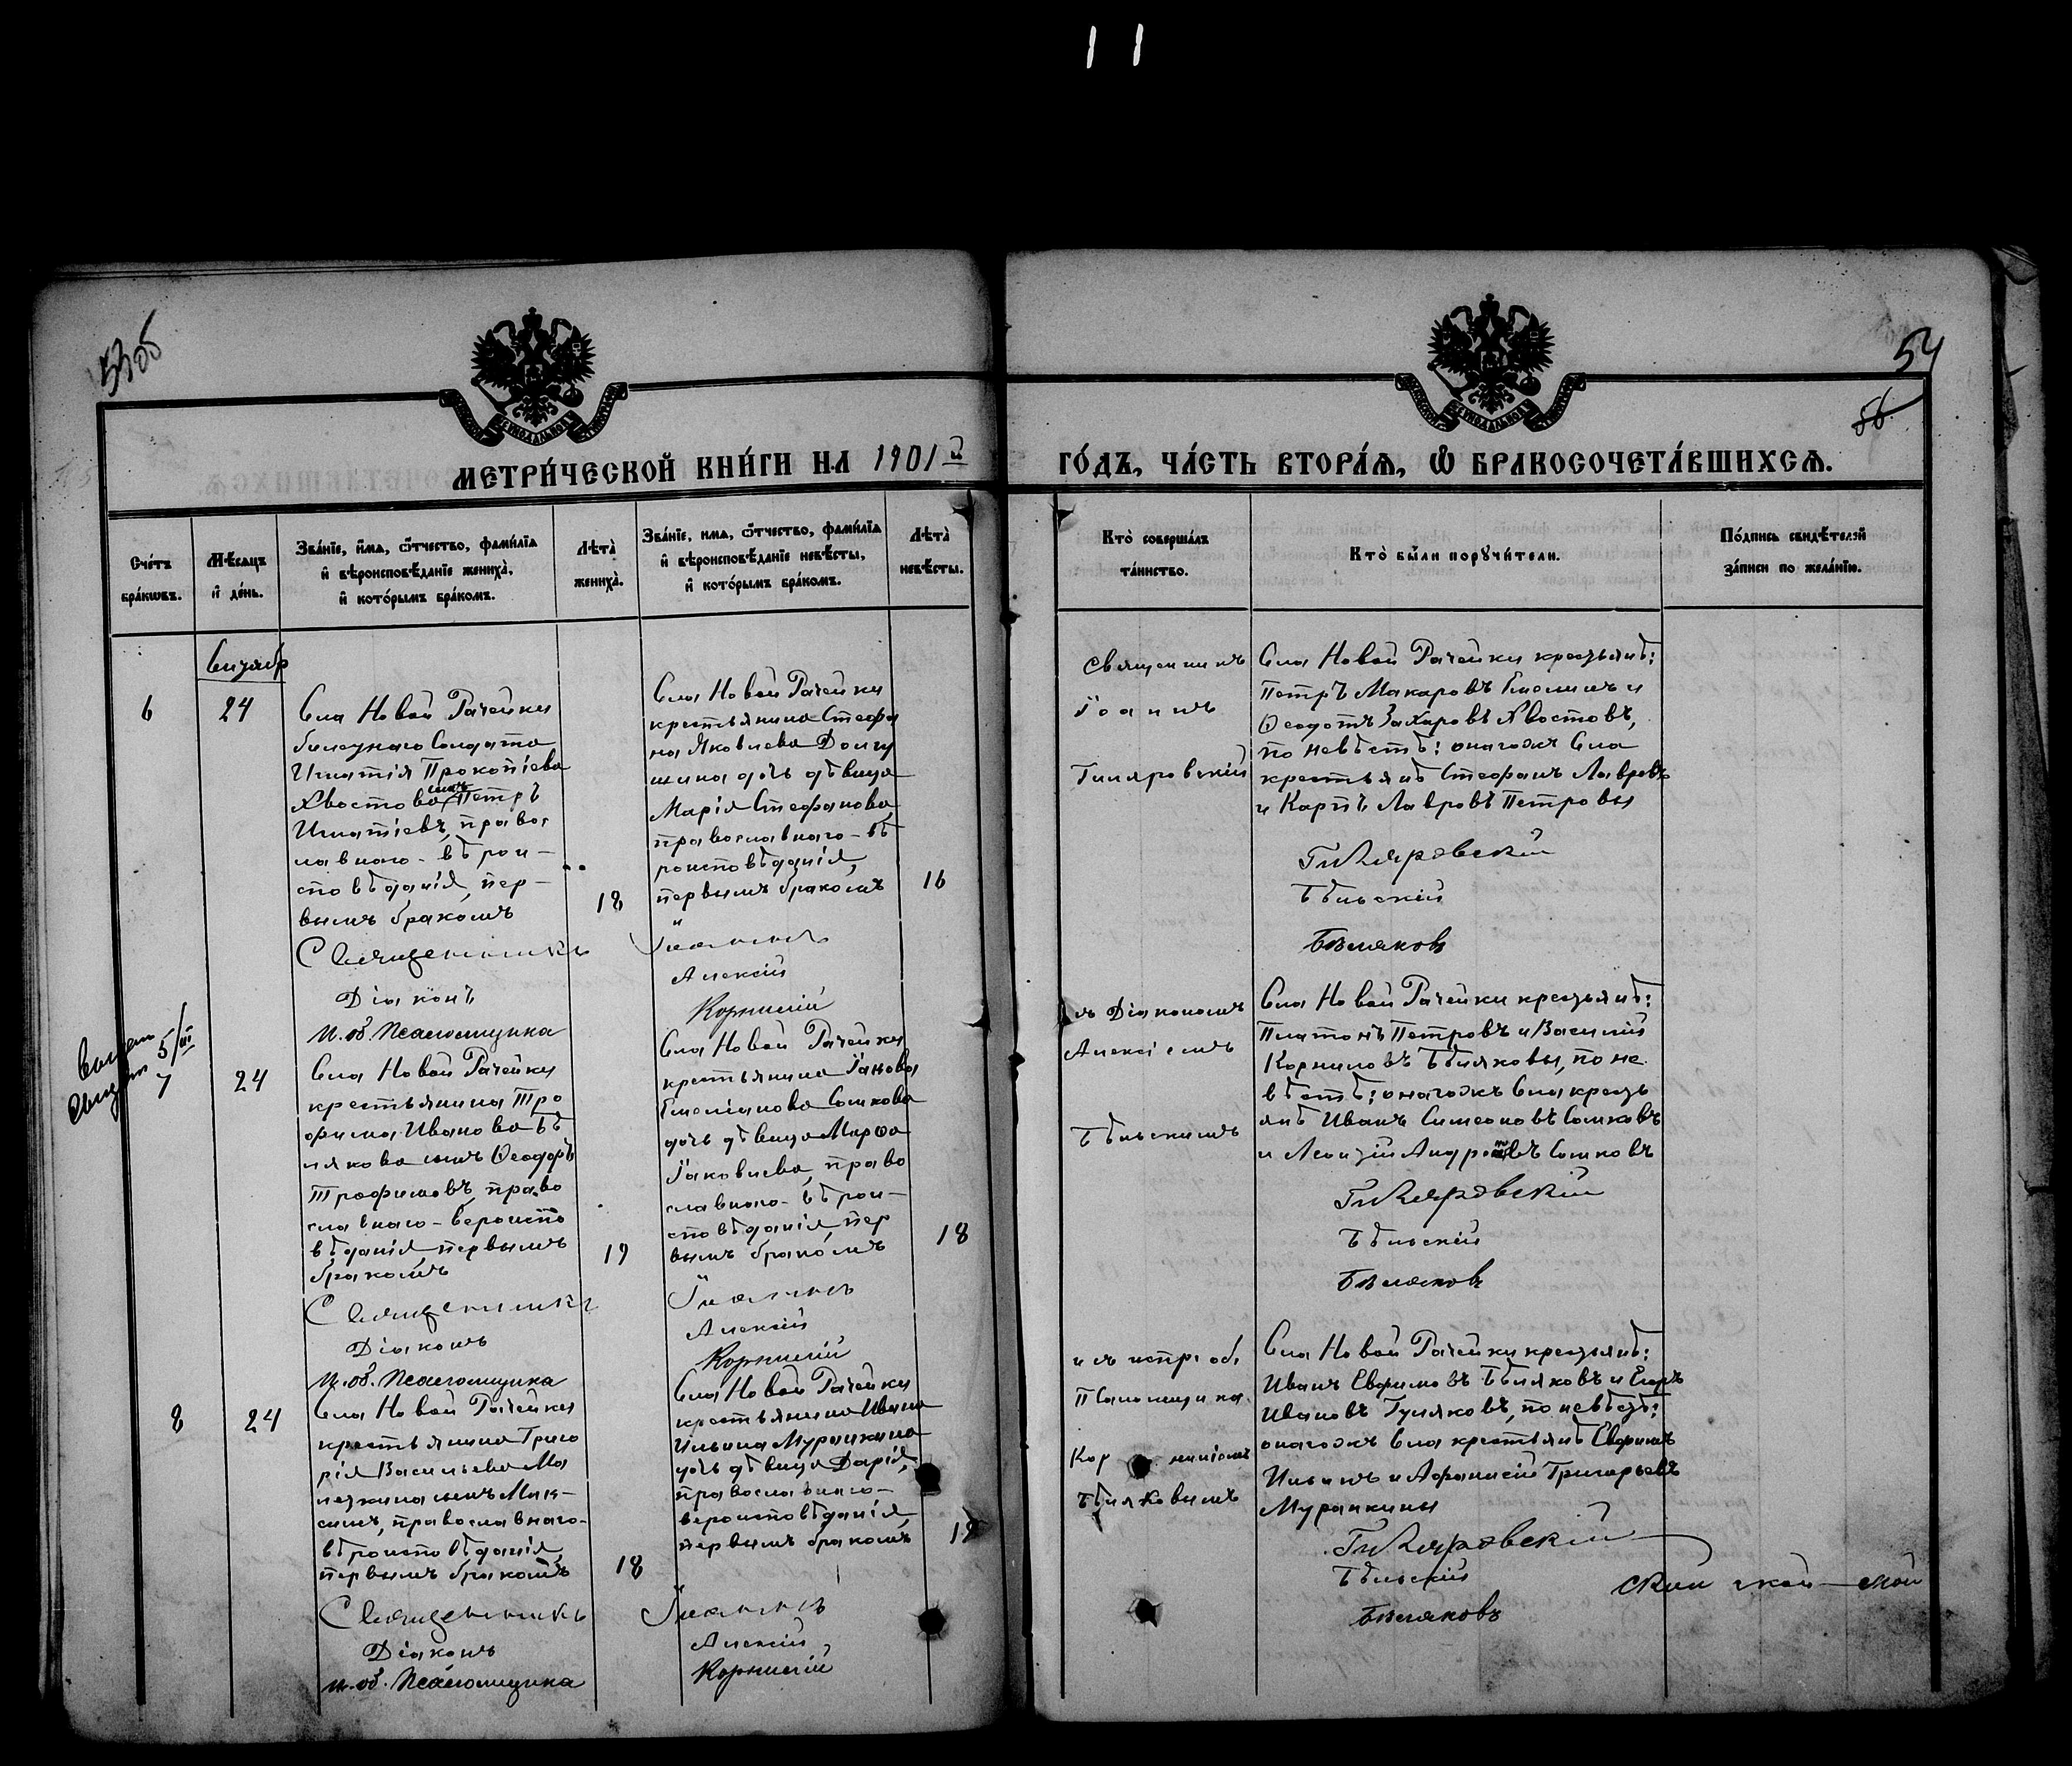 11
53об
54
56
МЕТРИ́ЧЕСКОЙ КНИ́ГИ НА 1901й
ГО́ДЪ, ЧА́СТЬ ВТОРА́Ѧ, Ѡ БРАКОСОЧЕТА́ВШИХСѦ.
Сче́тъ
бра́кѡвъ.
Мѣ́сѧцъ
и҆ де́нь.
Зва́нїе, и҆́мѧ, ѿ́чество, фами́лїѧ
и҆ вѣроисповѣ́данїе жениха̀,
и҆ кото́рымъ бра́комъ.
Лѣта̀
жениха̀.
Зва́нїе, и҆́мѧ, ѿ́чество, фами́лїѧ
и҆ вѣроисповѣ́данїе невѣ́сты,
и҆ кото́рымъ бра́комъ.
Лѣта̀
невѣ́сты.
Кто̀ соверша́лъ
та́инство.
Кто̀ бы́ли порꙋчи́тели.
По́дпись свидѣ́телей
за́писи по жела́нїю.
6
24
Села Новой Рачейки
билетнаго Солдата
Игнатія Прокопіева
Хвостова сынъ Петръ
Игнатіевъ, правос
лавнаго-вѣрои-
сповѣданія, пер-
вымъ бракомъ
18
Села Новой Рачейки
крестьянина Стефа
на Яковлева Долгу
шина дочь дѣвица
Марія Стефанова
православнаго-вѣ
роисповѣданія,
первымъ бракомъ
16
Священникъ Іоаннъ
Діаконъ Алексій
И. об. Псаломщика Корнилій
Священникъ
Іоаннъ
Гиляровскій
Села Новой Рачейки крестьянѣ:
Петръ Макаровъ и
Ѳеодотъ Захаровъ Хвостовъ,
по невѣстѣ: онагожъ Села
крестьянѣ Стефанъ Лавровъ
и Карпъ Лавровъ Петровы
Гиляровскій
Бѣльскій
Бѣляковъ
5/III
7
24
Села Новой Рачейки
крестьянина Тро
фима Иванова Бѣ
лякова сынъ Ѳеодоръ
Трофимовъ, право
славнаго-вероиспо
вѣданія первымъ
бракомъ
19
Села Новой Рачейки
крестьянина Іакова
Емеліанова Сомкова
дочь дѣвица Марѳа
Іаковлева, право
славнаго-вѣрои-
сповѣданія пер
вымъ бракомъ
18
Священникъ Іоаннъ
Діаконъ Алексій
И. об. Псаломщика Корнилій
съ Діакономъ
Алексіемъ
Бѣльскимъ
Села Новой Рачейки крестьянѣ:
Платонъ Петровъ и Василій
Корниловъ Бѣляковы, по не
вѣстѣ: онагожъ Села кресть
янѣ Иванъ Симеоновъ Сомковъ
и Леонтій Сомковъ
Гиляровскій
Бѣльскій
Бѣляковъ
8
24
Села Новой Рачейки
крестьянина Григо
рія Васильева Ма
сынъ Мак-
симъ, православнаго-
вѣроисповѣданія,
первымъ бракомъ
18
Села Новой Рачейки
крестьянина Ивана
Ильина Муранкина
дочь дѣвица Дарія,
православнаго-
вероисповѣданія,
первымъ бракомъ
Священникъ Іоаннъ
Діаконъ Алексій
И. об. Псаломщика Корнилій
и съ испр. об.
Псаломщика
Корниліемъ
Бѣляковымъ
Села Новой Рачейки крестьянѣ:
Иванъ Евфимовъ Бѣляковъ и Егоръ
Ивановъ Гуляковъ, по невѣстѣ:
онагожъ Села крестьянѣ Евфимъ
Ильинъ и Афанасій Григорьевъ
Муранкины
Гиляровскій
Бѣльскій
Бѣляковъ